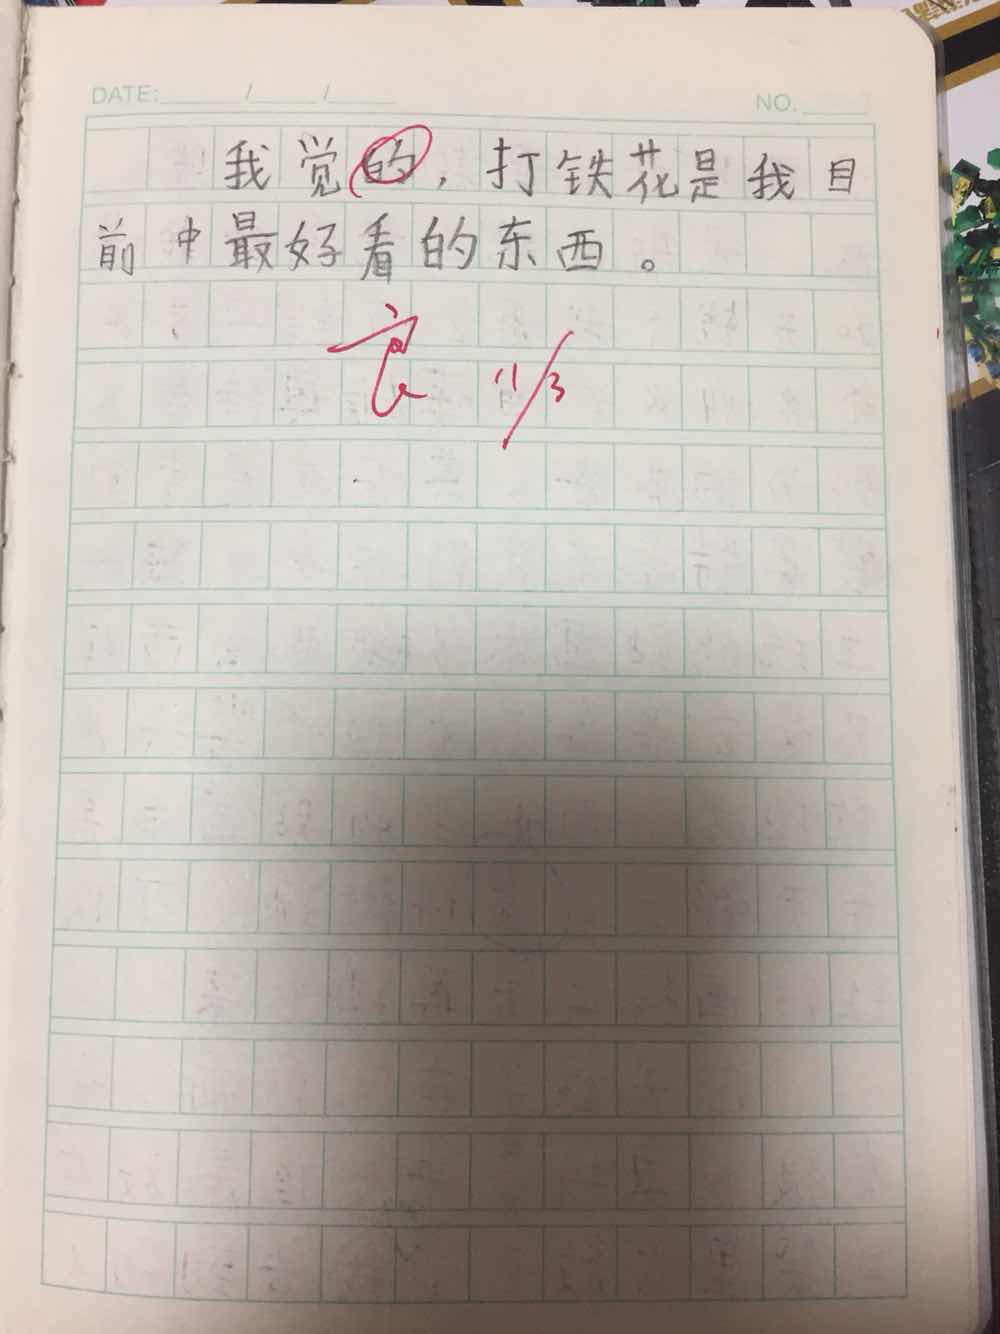 DATE: / /
NO.
我觉的，打铁花是我目
前中最好看的东西。
良 11/3